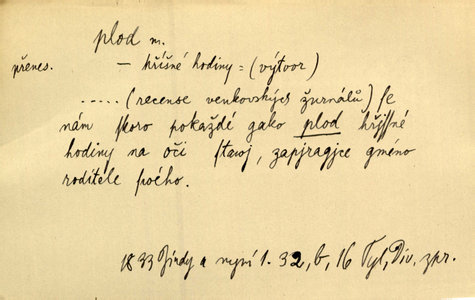 plod m.
přenes. — hříšné hodiny = (výtvor)
..... (recense venkovských žurnálů) se
nám skoro pokaždé gako plod hřjssné
hodiny na oči stawj, zapjragjce gméno
roditele swého.
1833 Jindy a nyní 1. 32, b, 16 Tyl, Div. zpr.